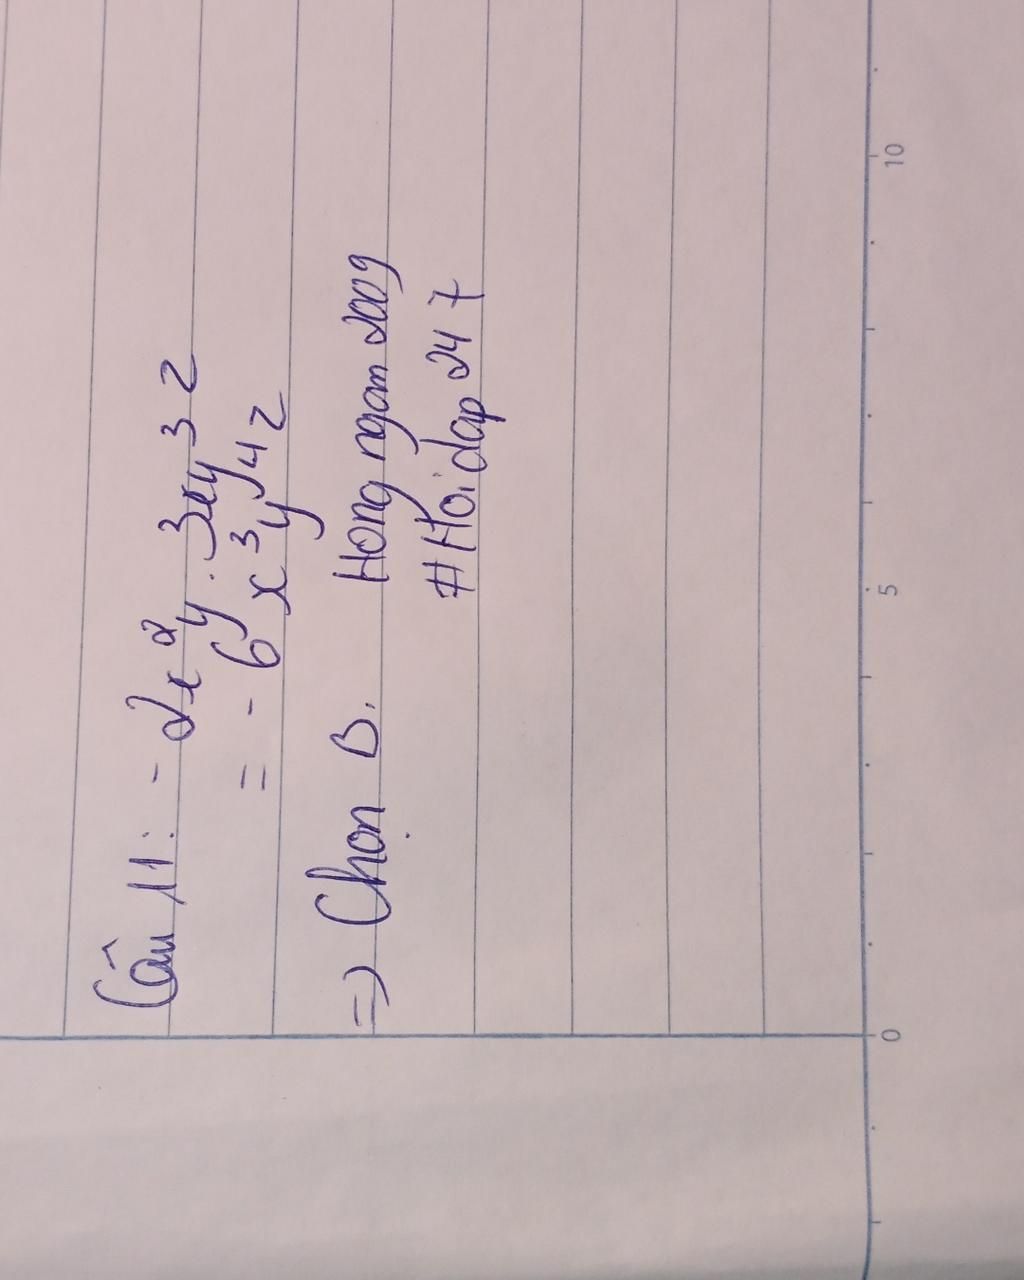 Câu 11: - 2x²y . 3xy³z
= - 6x³y⁴z
=> Chọn B. Hongngan2009
#Hoidap247
0 5 10